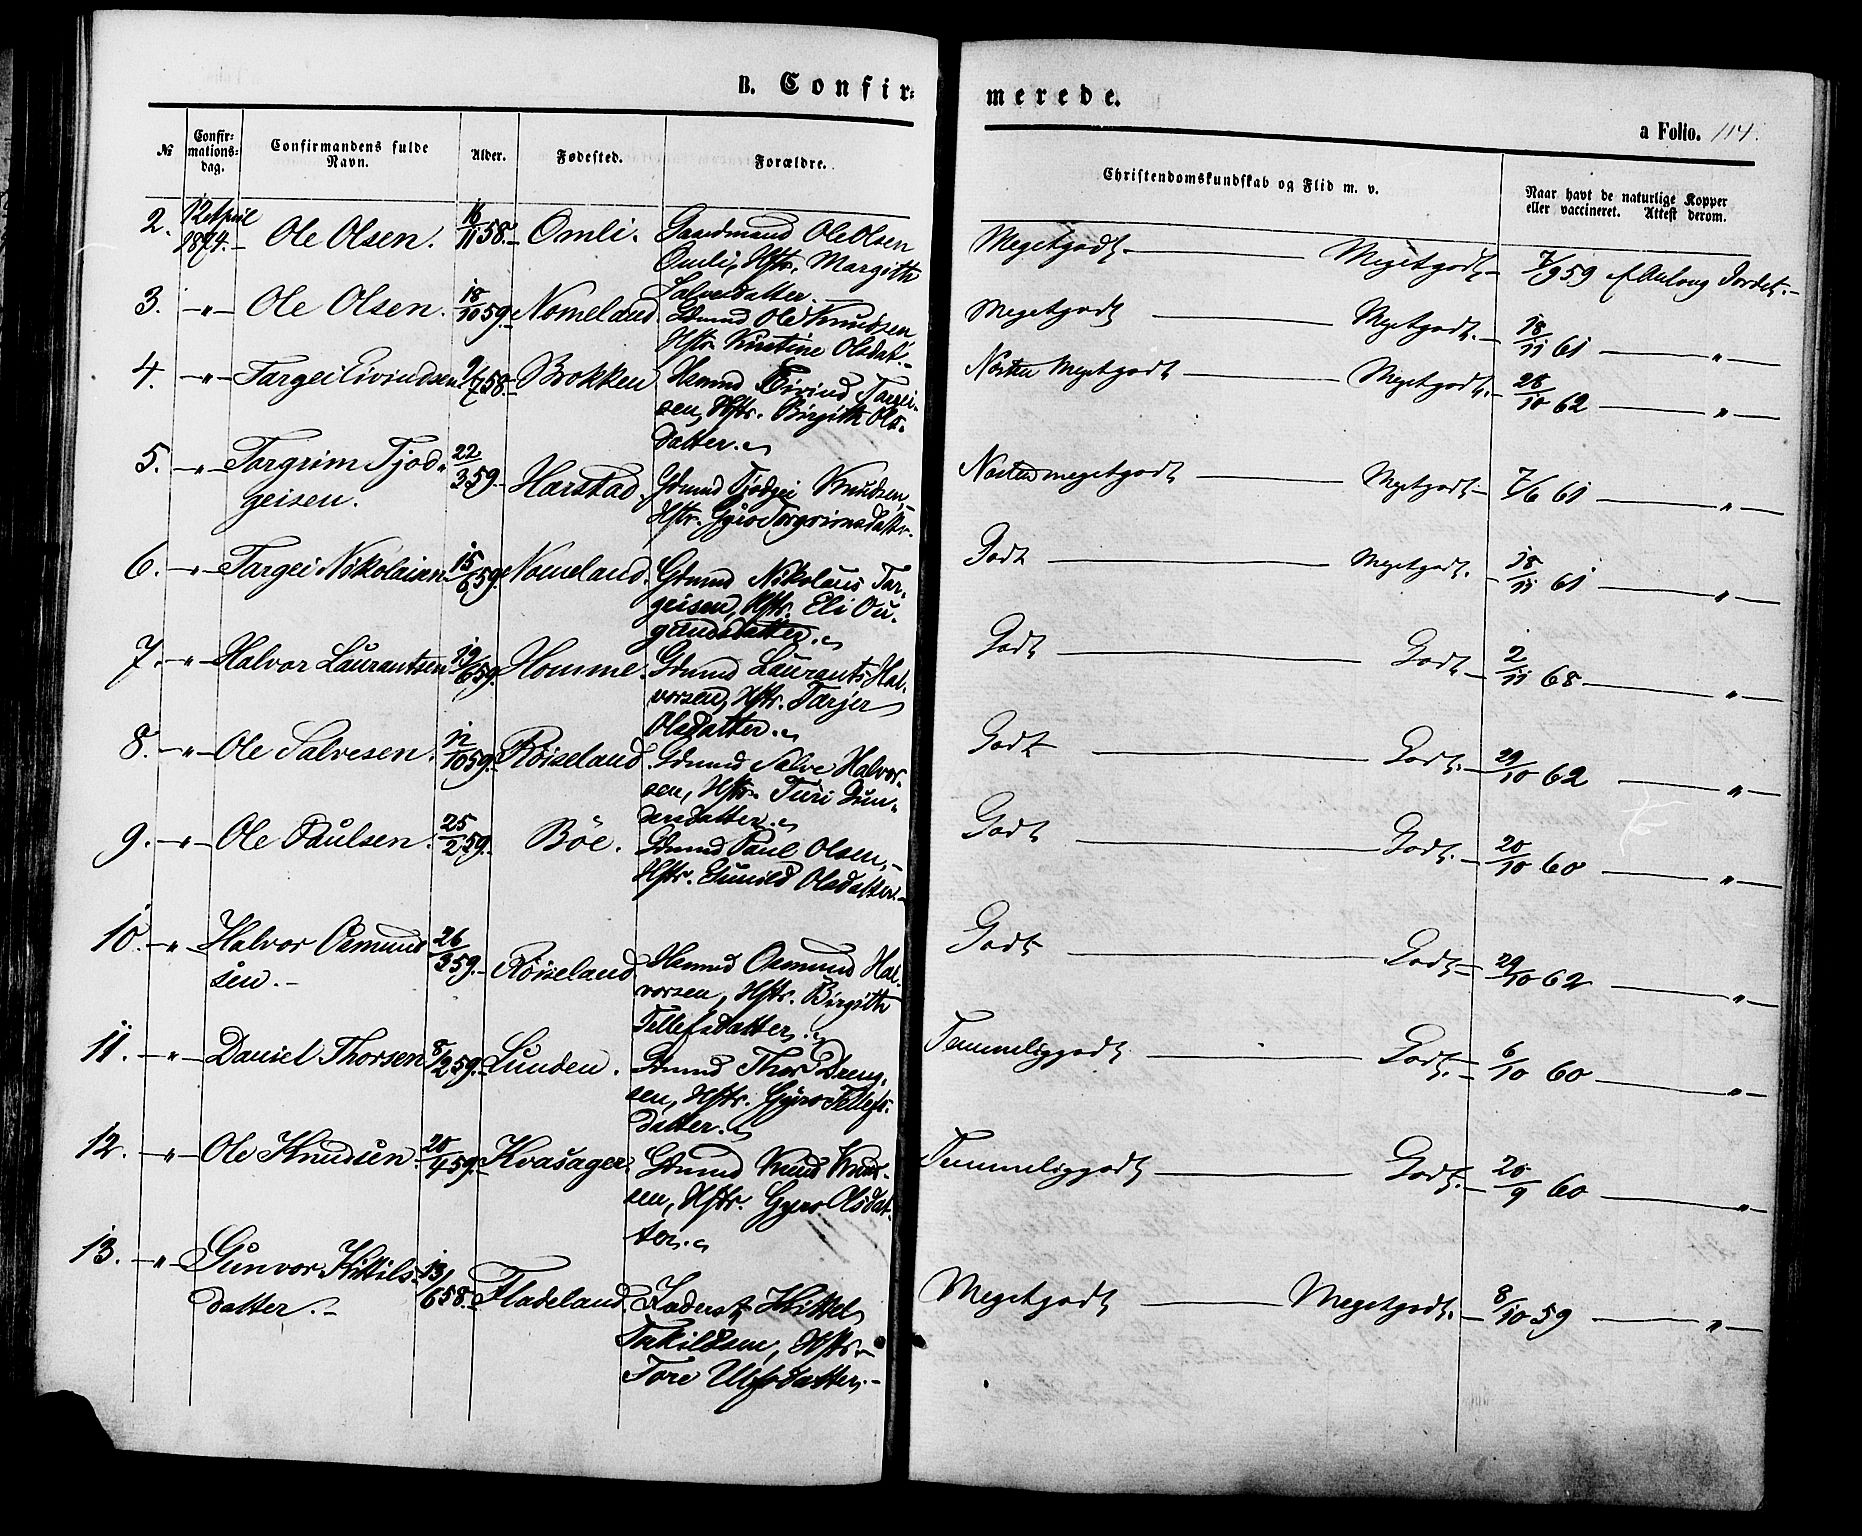 B. Confir-
merede.
a Folio. 114.
№
Confir-
mations-
dag.
Confirmandens fulde
Navn.
Alder.
Fødested.
Forældre.
Christendomskundskab og Flid m. v.
Naar havt de naturlige Kopper
eller vaccineret. Attest derom.
2. 12 April 1874.- Ole Olsen. 16/11 58.- Omli. Gaardmand Ole Olsen
Omli, Hstr. Margith
Salvesdatter.
Megetgodt. — Megetgodt.- 7/9 59
3. -"- Ole Olsen. 18/10 59.- Nomeland. Gdmnd Ole Knudsen,
Hstr. Kirstine Olsdat.-
Megetgodt — Megetgodt.- 18/11 61 — "
4. -"- Targei Eivindsen 9/7 58.- Brokken Hmnd Eivind Targei-
sen, Hstr. Birgith Ols-
datter.
Næsten Megetgodt — Megetgodt.- 28/10 62 — "
5. -"- Torgrim Tjod-
geisen. 22/3 59.- Harstad. Gdmnd Tjodgei Knudsen,
Hstr. Gyro Torgrimsdatter.
Næsten megetgodt — Megetgodt- 7/6 61 — "
6. -"- Targei Nikolaisen 15/6 59. Nomeland. Gdmnd Nikolaus Tar-
geisen, Hstr. Eli Ou-
gundsdatter.
Godt — Megetgodt.- 18/11 61 — "
7. -"- Halvor Laurantsen 19/6 59. Homme. Gdmnd Laurants Hal-
vorsen, Hstr. Tarjer
Olsdatter.
Godt — Godt.- 2/11 68 — "
8. -"- Ole Salvesen. 12/10 59. Røiseland. Gdmnd Salve Halvor-
sen, Hstr. Turi Gun-
dersdatter.
Godt — Godt.- 29/10 62 — "
9. -"- Ole Paulsen. 25/2 59. Bøe. Gdmnd Paul Olsen,-
Hstr. Gunild Olsdatter.-
Godt — Godt.- 20/10 60 — "
10. -"- Halvor Osmund-
sen.- 26/3 59.- Røiseland. Hmnd Osmund Hal-
vorsen, Hstr. Birgith
Tellefsdatter.
Godt — Godt.- 29/10 62 — "
11. -"- Daniel Thorsen 8/2 59.- Lunden. Gdmnd Thor Dreng-
sen, Hstr. Gyro Tellefs-
datter.
Temmeliggodt — Godt.- 6/10 60 — "
12. -"- Ole Knudsen. 20/4 59.- Kvasager. Gdmnd Knud Knud-
sen, Hstr. Gyro Olsdat-
ter.
Temmeliggodt — Godt.- 20/9 60 — "
13. -"- Gunvor Kittils-
datter.- 13/6 58.- Fladeland. Kittel
Takildsen, Hstr.-
Tore Ulfsdatter.-
Megetgodt — Megetgodt.- 8/10 59 — "